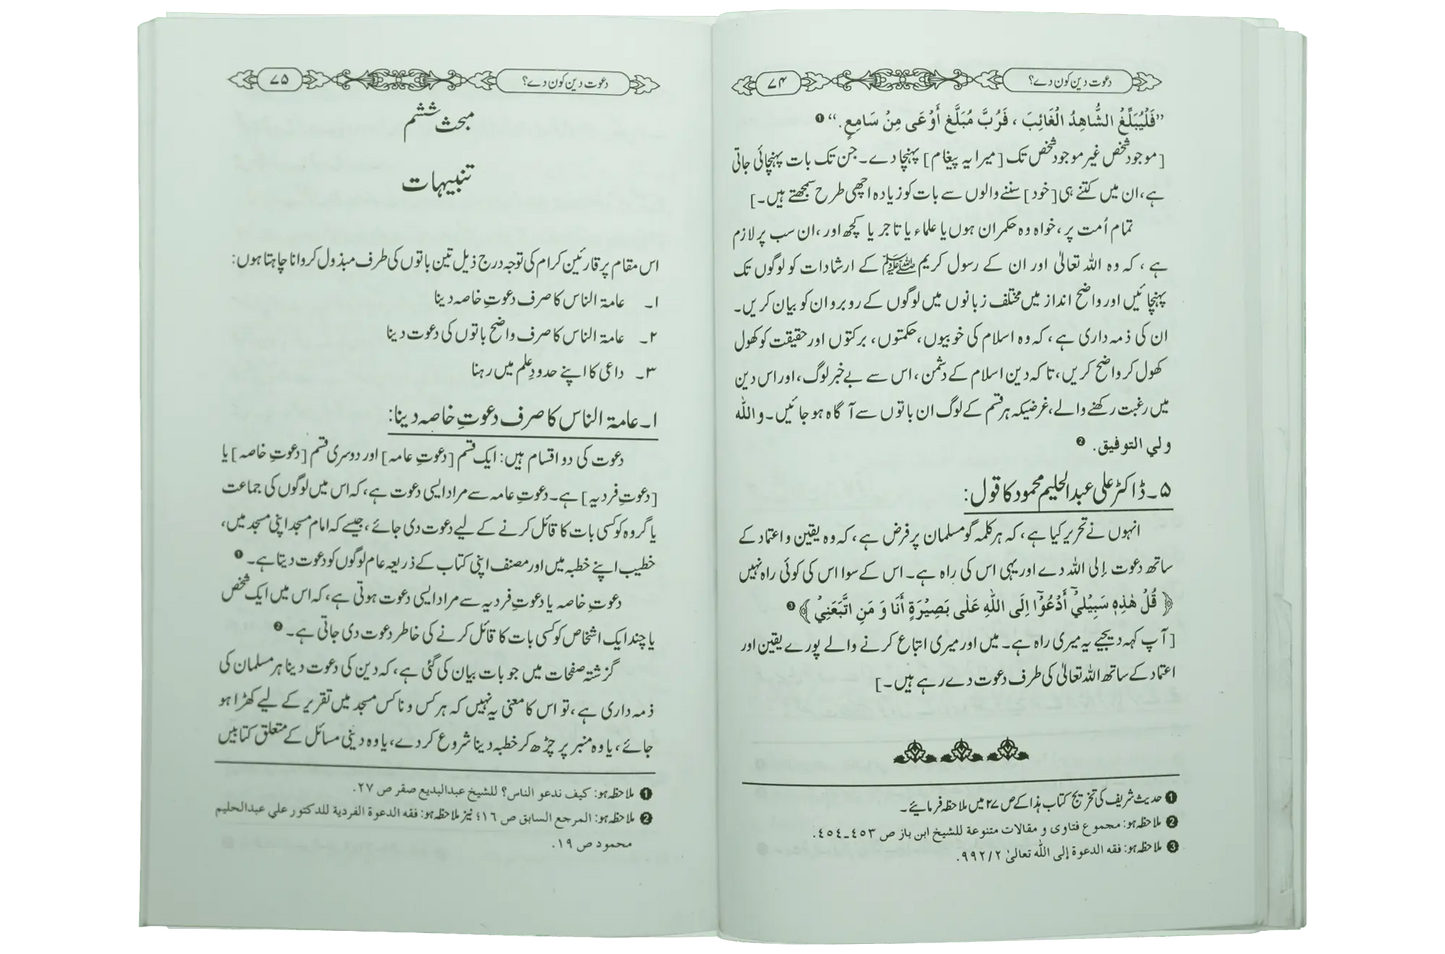 دعوت دین کون دے؟
۷۴
”فَلْيُبَلِّغْ الشَّاهِدُ الْغَائِبَ ، فَرُبَّ مُبَلَّغٍ أَوْعَى مِنْ سَامِعٍ.“ ❶
[موجود شخص غیر موجود شخص تک [میرا یہ پیغام] پہنچا دے۔ جن تک بات پہنچائی جاتی
ہے، ان میں کتنے ہی [خود] سننے والوں سے بات کو زیادہ اچھی طرح سمجھتے ہیں۔]
تمام اُمت پر، خواہ وہ حکمران ہوں یا علماء یا تاجر یا کچھ اور، ان سب پر لازم
ہے، کہ وہ اللہ تعالیٰ اور ان کے رسول کریم ﷺ کے ارشادات کو لوگوں تک
پہنچائیں اور واضح انداز میں مختلف زبانوں میں لوگوں کے روبرو ان کو بیان کریں۔
ان کی ذمہ داری ہے، کہ وہ اسلام کی خوبیوں، حکمتوں، برکتوں اور حقیقت کو کھول
کھول کر واضح کریں، تاکہ دین اسلام کے دشمن، اس سے بے خبر لوگ، اور اس دین
میں رغبت رکھنے والے، غرضیکہ ہر قسم کے لوگ ان باتوں سے آگاہ ہو جائیں۔ واللّٰه
ولي التوفيق. ❷
۵۔ ڈاکٹر علی عبدالحلیم محمود کا قول:
انہوں نے تحریر کیا ہے، کہ ہر کلمہ گو مسلمان پر فرض ہے، کہ وہ یقین و اعتماد کے
ساتھ دعوت إلى اللہ دے اور یہی اس کی راہ ہے۔ اس کے سوا اس کی کوئی راہ نہیں
﴿ قُلْ هٰذِهٖ سَبِيْلِيْٓ أَدْعُوْٓا إِلَى اللّٰهِ عَلٰى بَصِيْرَةٍ أَنَا وَ مَنِ اتَّبَعَنِيْ ﴾ ❸
[آپ کہہ دیجیے یہ میری راہ ہے۔ میں اور میری اتباع کرنے والے پورے یقین اور
اعتماد کے ساتھ اللہ تعالیٰ کی طرف دعوت دے رہے ہیں۔]
❶ حدیث شریف کی تخریج کتاب ہذا کے ص ۲۷ میں ملاحظہ فرمائیے۔
❷ ملاحظہ ہو: مجموع فتاوى و مقالات متنوعة للشيخ ابن باز ص ۴۵۳۔۴۵۴.
❸ ملاحظہ ہو: فقه الدعوة إلى اللّٰه تعالىٰ ۹۹۲/۲.
دعوت دین کون دے؟
۷۵
مبحث ششم
تنبیہات
اس مقام پر قارئین کرام کی توجہ درج ذیل تین باتوں کی طرف مبذول کروانا چاہتا ہوں:
۱۔ عامۃ الناس کا صرف دعوتِ خاصہ دینا
۲۔ عامۃ الناس کا صرف واضح باتوں کی دعوت دینا
۳۔ داعی کا اپنے حدودِ علم میں رہنا
۱۔ عامۃ الناس کا صرف دعوتِ خاصہ دینا:
دعوت کی دو اقسام ہیں: ایک قسم [دعوتِ عامہ] اور دوسری قسم [دعوتِ خاصہ] یا
[دعوتِ فردیہ] ہے۔ دعوتِ عامہ سے مراد ایسی دعوت ہے، کہ اس میں لوگوں کی جماعت
یا گروہ کو کسی بات کا قائل کرنے کے لیے دعوت دی جائے، جیسے کہ امام مسجد اپنی مسجد میں،
خطیب اپنے خطبہ میں اور مصنف اپنی کتاب کے ذریعہ عام لوگوں کو دعوت دیتا ہے۔ ❶
دعوتِ خاصہ یا دعوتِ فردیہ سے مراد ایسی دعوت ہوتی ہے، کہ اس میں ایک شخص
یا چند ایک اشخاص کو کسی بات کا قائل کرنے کی خاطر دعوت دی جاتی ہے۔ ❷
گزشتہ صفحات میں جو بات بیان کی گئی ہے، کہ دین کی دعوت دینا ہر مسلمان کی
ذمہ داری ہے، تو اس کا معنی یہ نہیں کہ ہر کس و ناکس مسجد میں تقریر کے لیے کھڑا ہو
جائے، یا وہ منبر پر چڑھ کر خطبہ دینا شروع کر دے، یا وہ دینی مسائل کے متعلق کتابیں
❶ ملاحظہ ہو: كيف ندعو الناس؟ للشيخ عبدالبديع صقر ص ۲۷.
❷ ملاحظہ ہو: المرجع السابق ص ۱۶؛ نیز ملاحظہ ہو: فقه الدعوة الفردية للدكتور علي عبدالحليم
محمود ص ۱۹.